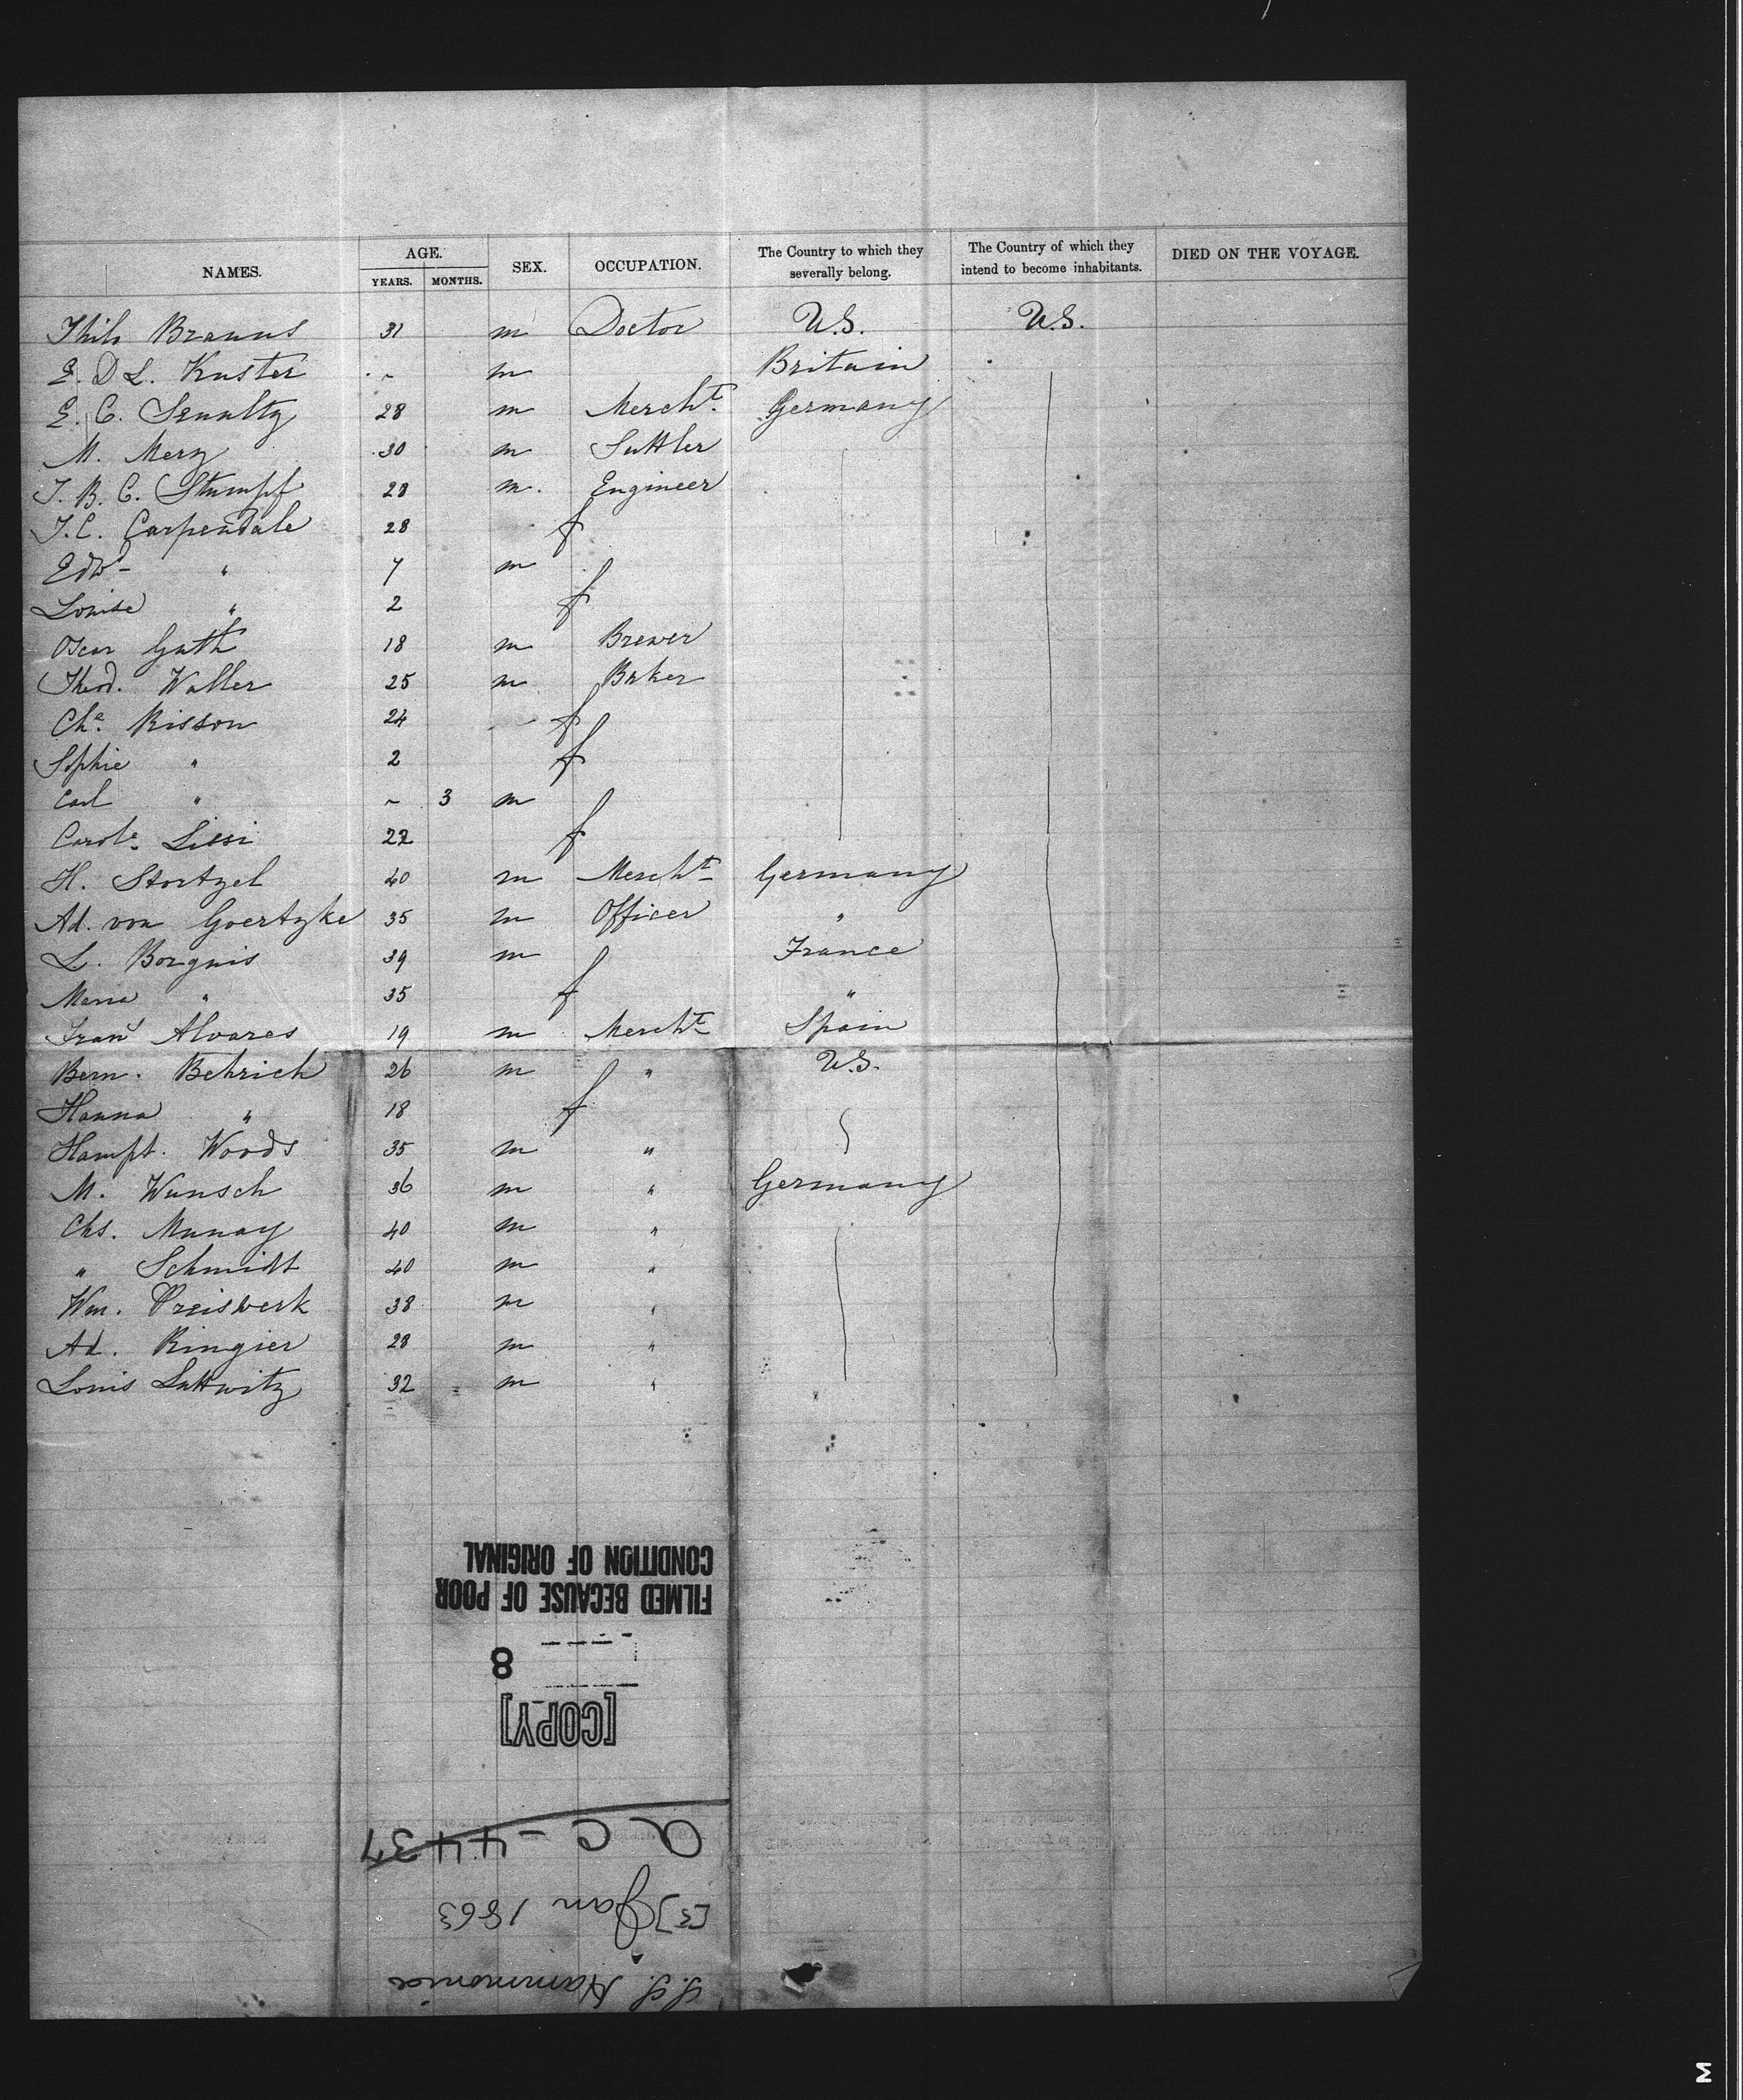 NAMES. AGE. YEARS. MONTHS. SEX. OCCUPATION. The Country to which they severally belong. The Country of which they intend to become inhabitants. DIED ON THE VOYAGE.
Thilo Brauns 31 m Doctor U.S. U.S.
E. D L. Kuster - m Britain
E. C. 28 m Mercht. Germany
M. Merz 30 m Suttler
T. B. C. Stumpf 28 m. Engineer
T. C. Carpendale 28 f
Edwd " 7 m
Louise " 2 f
Oscar Guth 18 m Brewer
Theod. Waller 25 m Baker
Che. Risson 24 f
Sophie " 2 f
Carl " - 3 m
Carole. Lissi 22 f
H. Stortzel 40 m Mercht Germany
Ad. von Goertzke 35 m Officer "
L. Borgnis 39 m France
Maria " 35 f "
Frans Alvares 19 m Mercht Spain
Bern. Behrich 26 m " U.S.
Hanna " 18 f
Hampt. Woods 35 m "
M. Wunsch 36 m " Germany
Chs. Munay 40 m "
" Schmidt 40 m "
Wm. Preiswerk 38 m "
Ad. Ringier 28 m "
Louis Luttwitz 32 m "
S.S. Hammonia
[3] Jan 1863
a c - 4437
[COPY]
8
FILMED BECAUSE OF POOR
CONDITION OF ORIGINAL
M